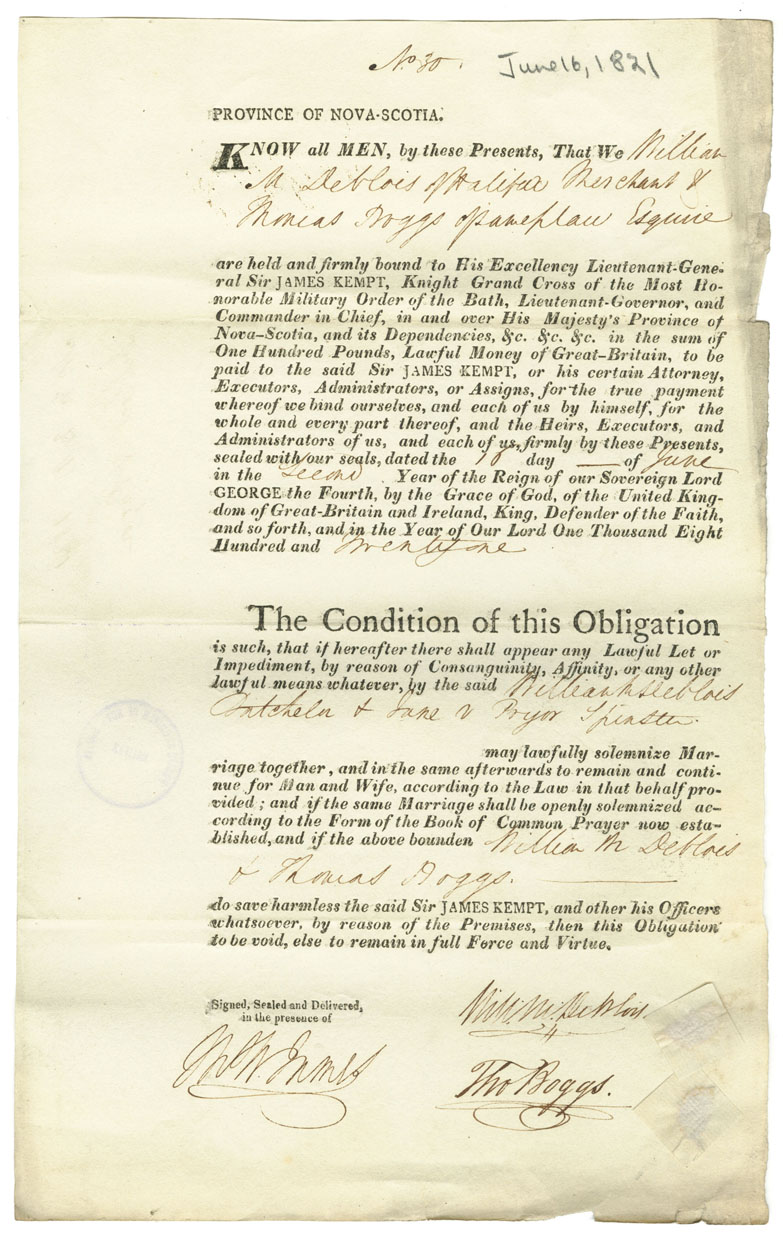 No 30.
June 16, 1821
PROVINCE OF NOVA-SCOTIA.
KNOW all MEN, by these Presents, That We William
M Deblois of Halifax Merchant &
Thomas Boggs of same place Esquire
are held and firmly bound to His Excellency Lieutenant-Gene-
ral Sir JAMES KEMPT, Knight Grand Cross of the Most Ho-
norable Military Order of the Bath, Lieutenant-Governor, and
Commander in Chief, in and over His Majesty's Province of
Nova-Scotia, and its Dependencies, &c. &c. &c. in the sum of
One Hundred Pounds, Lawful Money of Great-Britain, to be
paid to the said Sir JAMES KEMPT, or his certain Attorney,
Executors, Administrators, or Assigns, for the true payment
whereof we bind ourselves, and each of us by himself, for the
whole and every part thereof, and the Heirs, Executors, and
Administrators of us, and each of us, firmly by these Presents,
sealed with our seals, dated the day of June
in the Second Year of the Reign of our Sovereign Lord
GEORGE the Fourth, by the Grace of God, of the United King-
dom of Great-Britain and Ireland, King, Defender of the Faith,
and so forth, and in the Year of Our Lord One Thousand Eight
Hundred and Twenty one
The Condition of this Obligation
is such, that if hereafter there shall appear any Lawful Let or
Impediment, by reason of Consanguinity, Affinity, or any other
lawful means whatever, by the said William M Deblois
Batchelor & Jane V Pryor Spinster.
may lawfully solemnize Mar-
riage together, and in the same afterwards to remain and conti-
nue for Man and Wife, according to the Law in that behalf pro-
vided; and if the same Marriage shall be openly solemnized ac-
cording to the Form of the Book of Common Prayer now esta-
blished, and if the above bounden William M Deblois
& Thomas Boggs.
do save harmless the said Sir JAMES KEMPT, and other his Officers
whatsoever, by reason of the Premises, then this Obligation
to be void, else to remain in full Force and Virtue.
Signed, Sealed and Delivered,
in the presence of
Will. M. Deblois.
Tho Boggs.